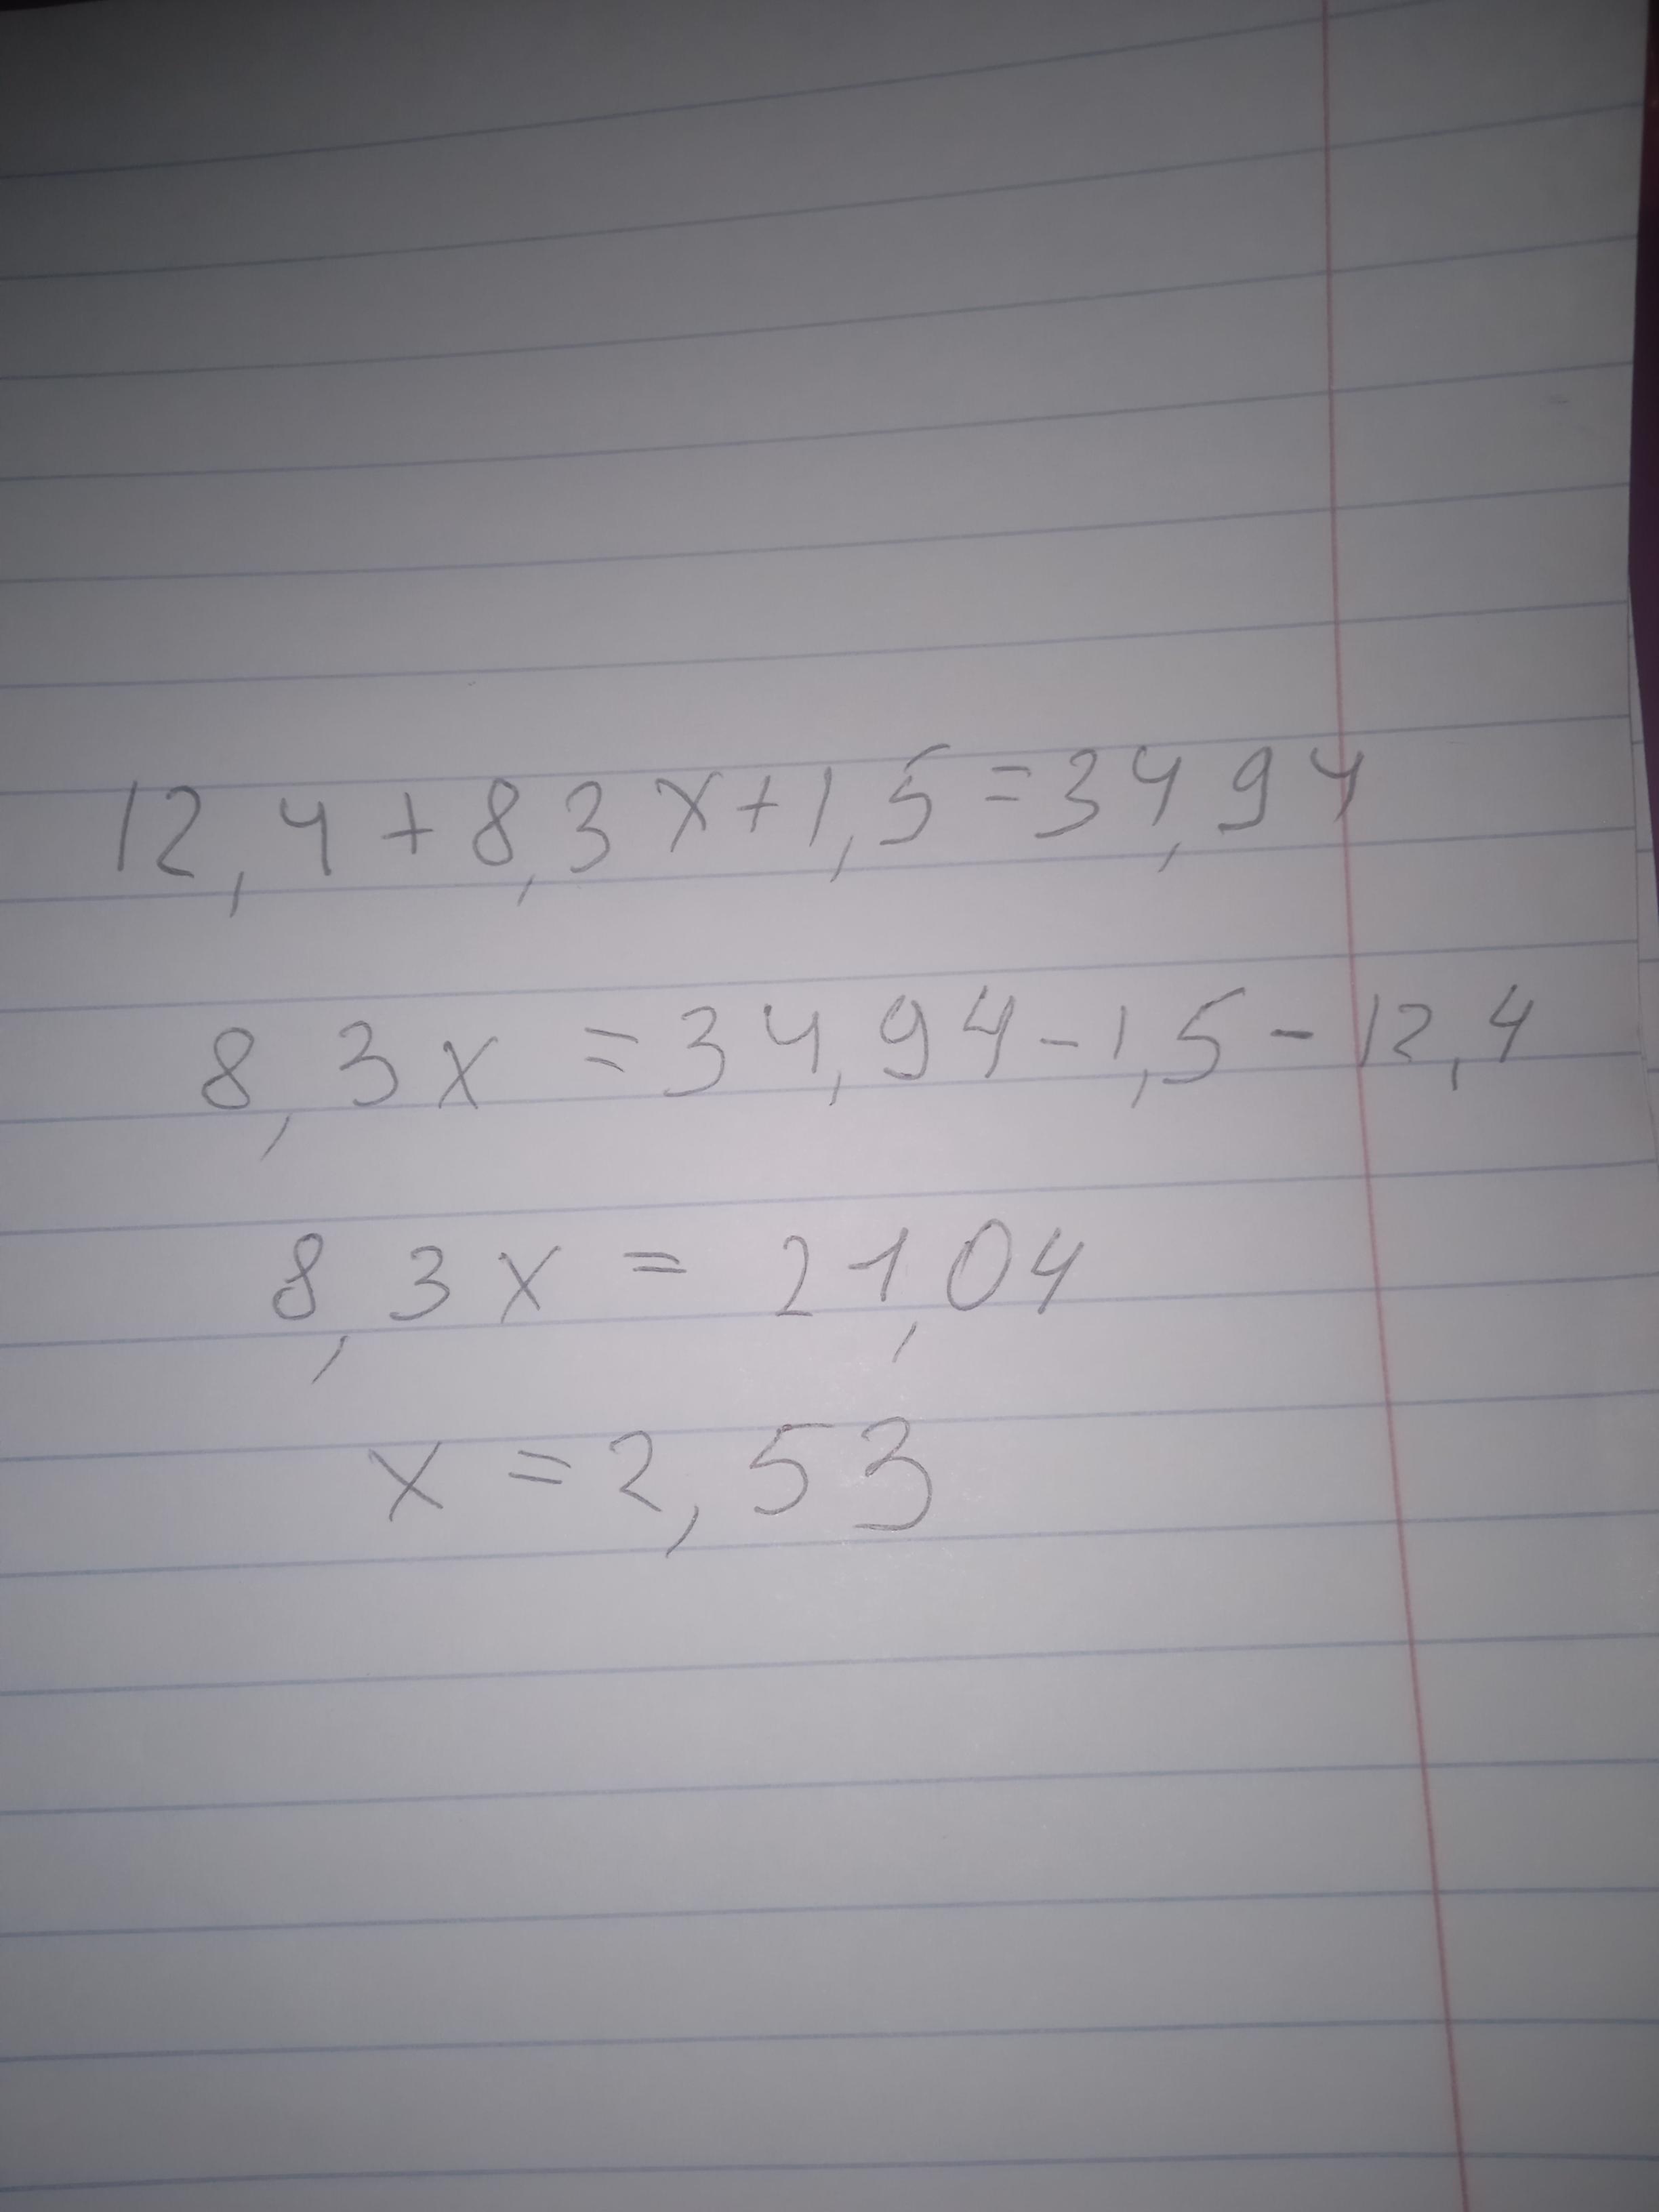 12,4+8,3x+1,5=34,94
8,3x=34,94-1,5-12,4
8,3x=21,04
x=2,53